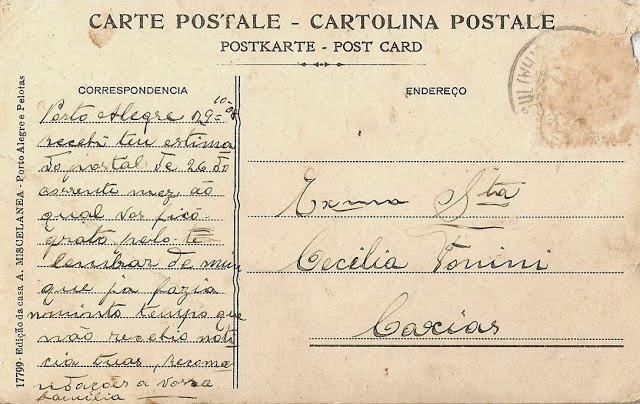 CARTE POSTALE - CARTOLINA POSTALE
POSTKARTE - POST CARD
CORRESPONDENCIA
ENDEREÇO
17799 - Edição da casa A MISCELANEA - Porto Alegre e Pelotas
Porto Alegre 29-10-
recebi teu estima
do postal de 26 do
corrente mez ao
qual vos fico
grato pelo te
lembrar de mim
que ja fazia
muinto tempo que
não recebio noti
cia tuas, recoma
ndações a vossa
familia
Exma Sta
Cecilia Tonini
Caxias